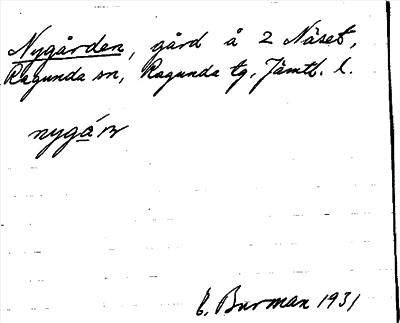 Nygården, gård å 2 Näset,
Ragunda sn, Ragunda tg, Jämtl. l.
E. Burman 1931